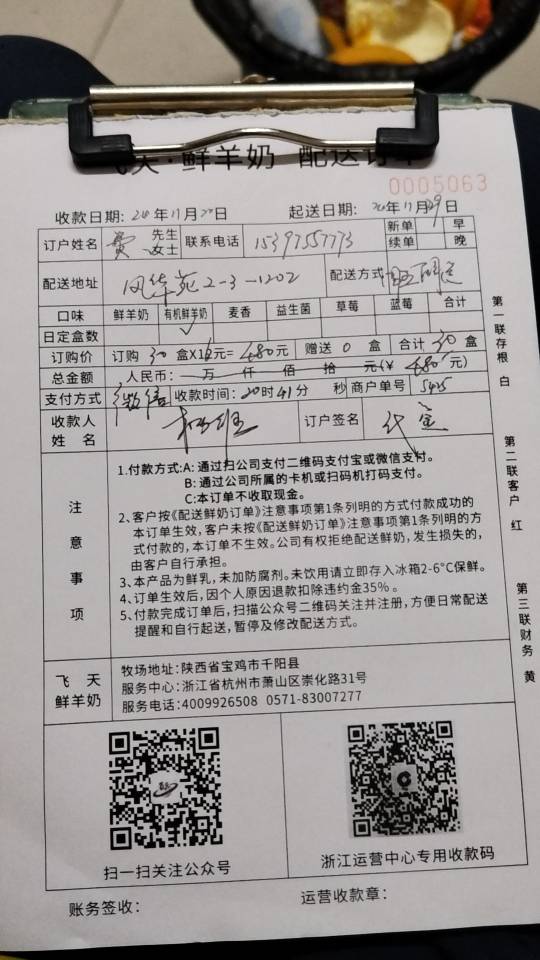 飞天·鲜羊奶 配送订单
0005063
收款日期: 年11月 日 起送日期: 年11月29日
订户姓名 费 先生 女士 联系电话 15397557773 新单 续单 早 晚
配送地址 风华苑2-3-1202 配送方式
口味 鲜羊奶 有机鲜羊奶 麦香 益生菌 草莓 蓝莓 合计
日定盒数 ✓
订购价 订购 30 盒X16元= 480元 赠送 0 盒 合计 30 盒
总金额 人民币: 万 仟 佰 拾 元(¥ 480 元)
支付方式 微信 收款时间: 20时41分 秒 商户单号 5425
收款人姓名 订户签名
注意事项
1.付款方式:A: 通过扫公司支付二维码支付宝或微信支付。
B: 通过公司所属的卡机或扫码机打码支付。
C:本订单不收取现金。
2、客户按《配送鲜奶订单》注意事项第1条列明的方式付款成功的
本订单生效, 客户未按《配送鲜奶订单》注意事项第1条列明的方
式付款的, 本订单不生效。公司有权拒绝配送鲜奶, 发生损失的,
由客户自行承担。
3、本产品为鲜乳, 未加防腐剂。未饮用请立即存入冰箱2-6°C保鲜。
4、订单生效后, 因个人原因退款扣除违约金35%。
5、付款完成订单后, 扫描公众号二维码关注并注册, 方便日常配送
提醒和自行起送, 暂停及修改配送方式。
飞天鲜羊奶
牧场地址:陕西省宝鸡市千阳县
服务中心:浙江省杭州市萧山区崇化路31号
服务电话:4009926508 0571-83007277
扫一扫关注公众号
浙江运营中心专用收款码
账务签收: 运营收款章:
第一联存根 白
第二联客户 红
第三联财务 黄